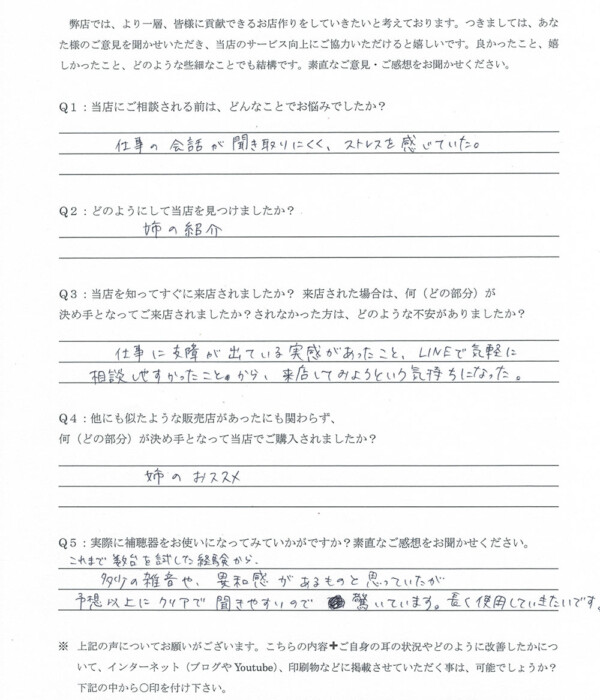 弊店では、より一層、皆様に貢献できるお店作りをしていきたいと考えております。つきましては、あな
た様のご意見を聞かせいただき、当店のサービス向上にご協力いただけると嬉しいです。良かったこと、嬉
しかったこと、どのような些細なことでも結構です。素直なご意見・ご感想をお聞かせください。
Q1：当店にご相談される前は、どんなことでお悩みでしたか？
仕事の会話が聞き取りにくく、ストレスを感じていた。
Q2：どのようにして当店を見つけましたか？
姉の紹介
Q3：当店を知ってすぐに来店されましたか？ 来店された場合は、何（どの部分）が
決め手となってご来店されましたか？されなかった方は、どのような不安がありましたか？
仕事に支障が出ている実感があったこと、LINEで気軽に
相談しやすかったこと。から、来店してみようという気持ちになった。
Q4：他にも似たような販売店があったにも関わらず、
何（どの部分）が決め手となって当店でご購入されましたか？
姉のおススメ
Q5：実際に補聴器をお使いになってみていかがですか？素直なご感想をお聞かせください。
これまで数台を試した経験から、
多少の雑音や、異和感があるものと思っていたが
予想以上にクリアで聞きやすいので 驚いています。長く使用していきたいです。
※ 上記の声についてお願いがございます。こちらの内容＋ご自身の耳の状況やどのように改善したかにつ
いて、インターネット（ブログやYoutube）、印刷物などに掲載させていただく事は、可能でしょうか？
下記の中から〇印を付け下さい。